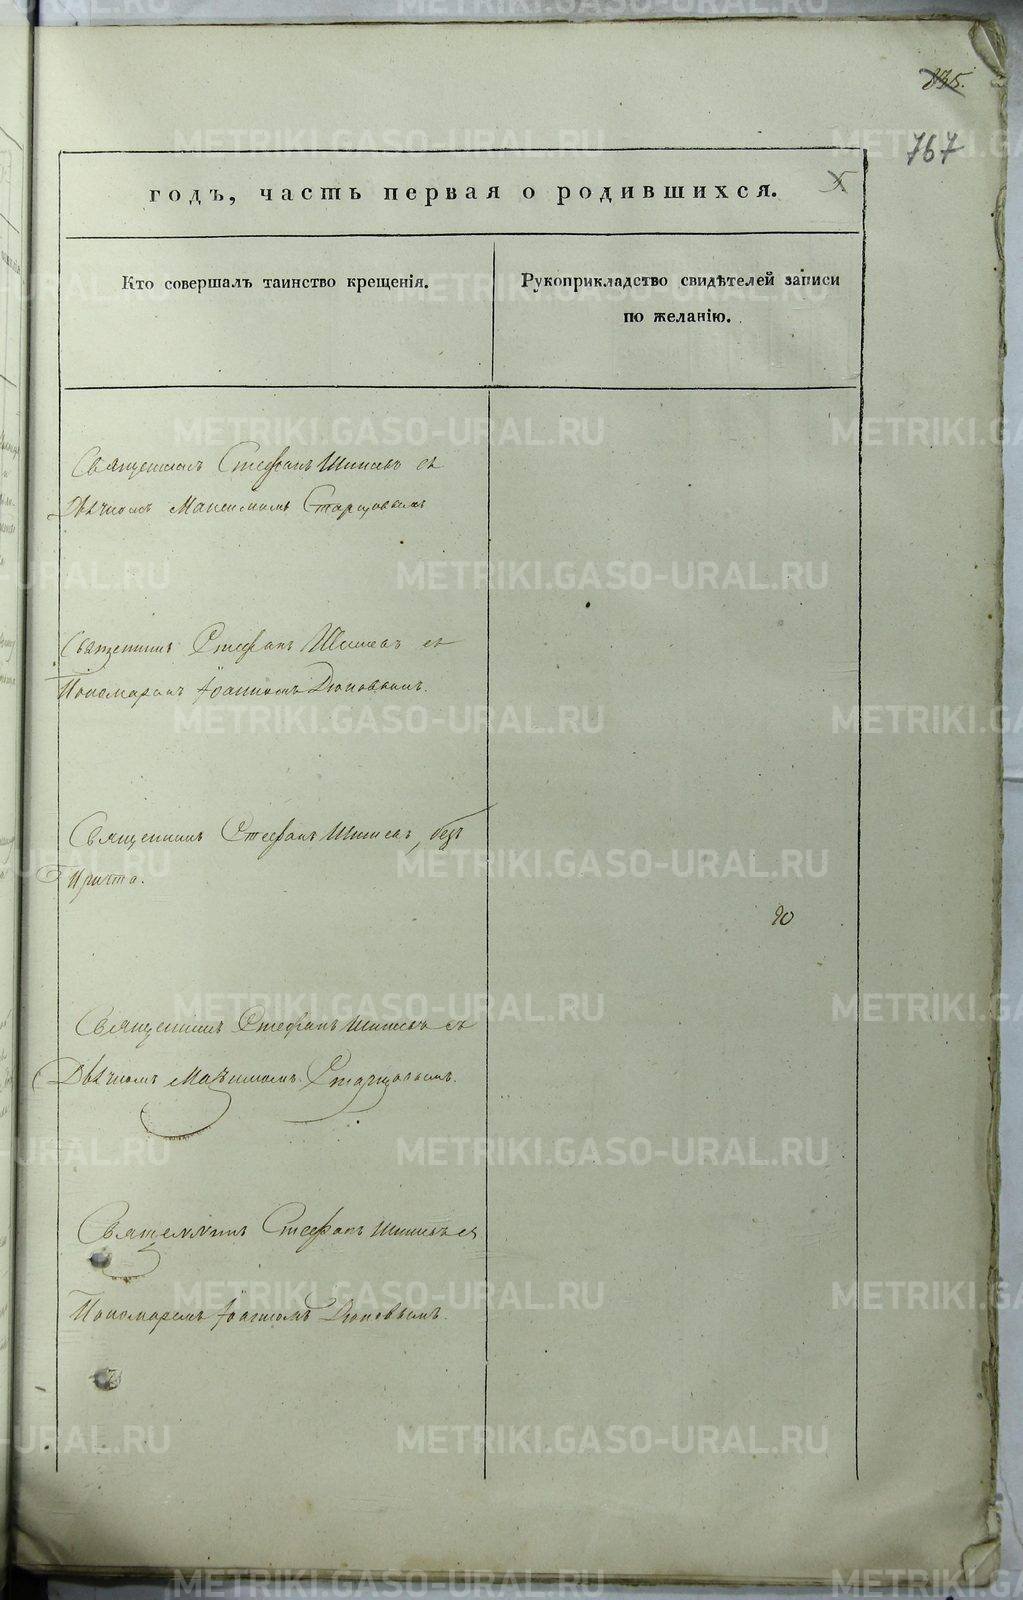 835.
767
годъ, часть первая о родившихся.
Кто совершалъ таинство крещенія.
Рукоприкладство свидѣтелей записи
по желанію.
Священникъ Стефанъ Шишевъ съ
Дьячкомъ Максимомъ Старцовымъ
Священникъ Стефанъ Шишевъ съ
Пономаремъ Іоанномъ
Священникъ Стефанъ Шишевъ, безъ
Причта.
20
Священникъ Стефанъ Шишевъ съ
Дьячкомъ Максимомъ Старцовымъ.
Священникъ Стефанъ Шишевъ съ
Пономаремъ Іоанномъ
METRIKI.GASO-URAL.RU